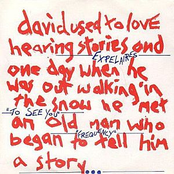 david used to love
hearing stories and
EXPELAIRES
one day when he
was out walking in
the snow he met
"TO SEE YOU"
an old man who
FREQUENCY
began to tell him
a story....